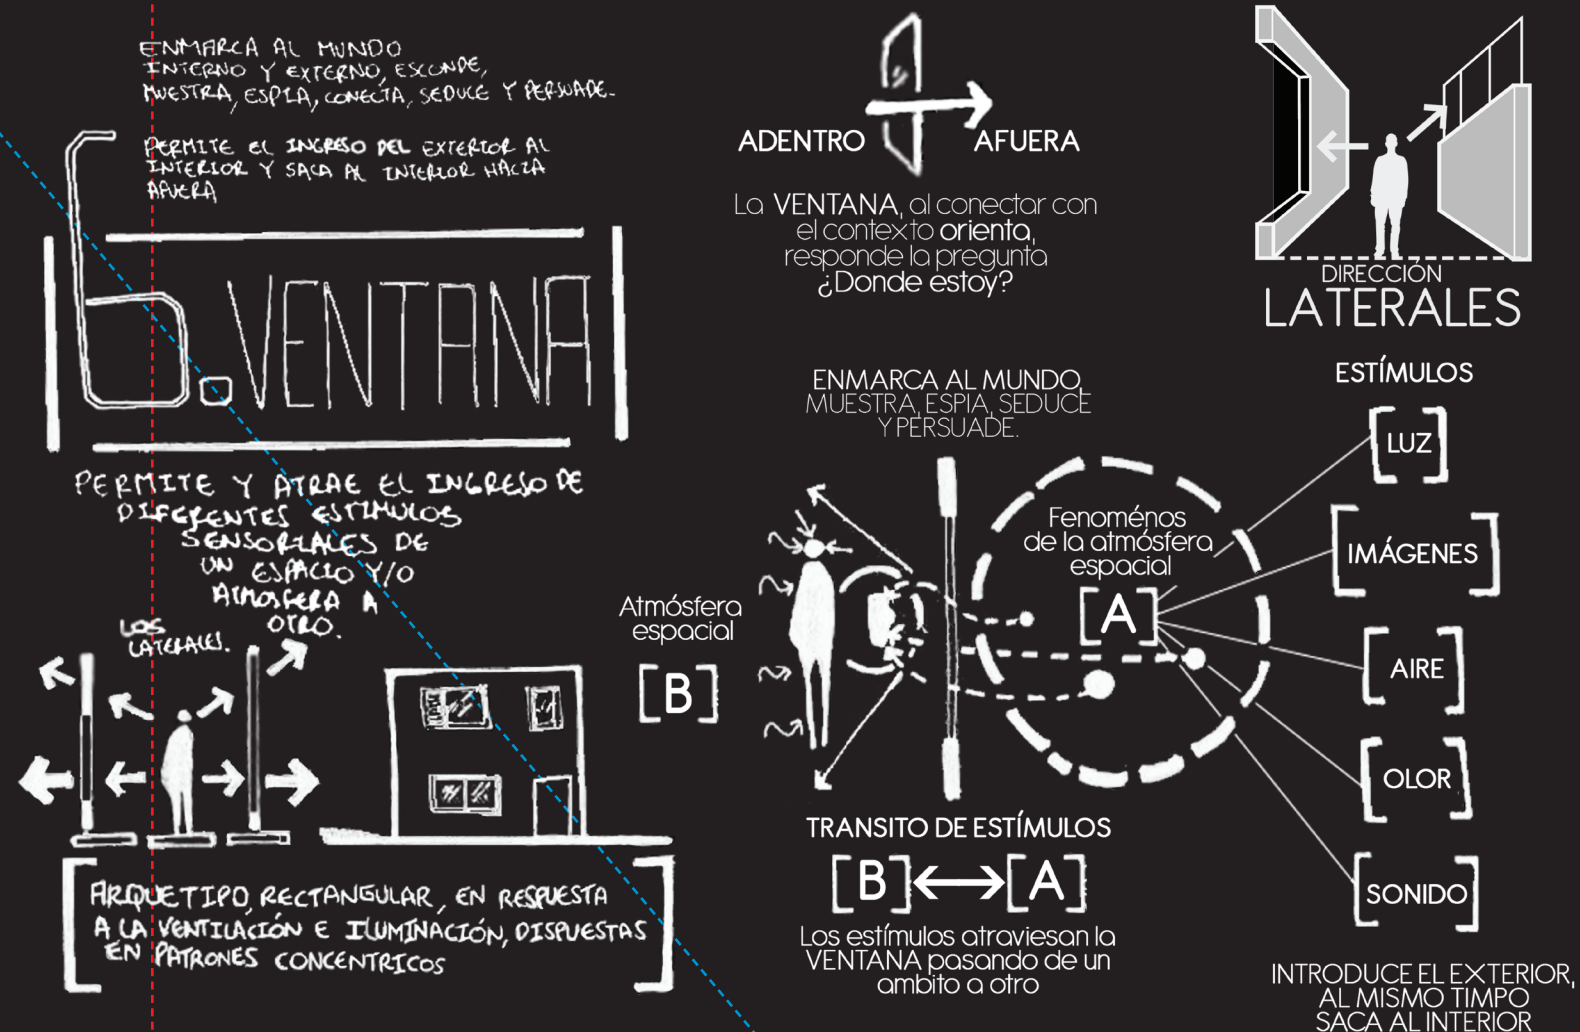 ENMARCA AL MUNDO
INTERNO Y EXTERNO, ESCONDE,
MUESTRA, ESPIA, CONECTA, SEDUCE Y PERSUADE.
PERMITE EL INGRESO DEL EXTERIOR AL
INTERIOR Y SACA AL INTERIOR HACIA
AFUERA
6. VENTANA
PERMITE Y ATRAE EL INGRESO DE
DIFERENTES ESTIMULOS
SENSORIALES DE
UN ESPACIO Y/O
ATMOSFERA A
OTRO.
LOS
LATERALES.
ARQUETIPO, RECTANGULAR, EN RESPUESTA
A LA VENTILACIÓN E ILUMINACIÓN, DISPUESTAS
EN PATRONES CONCENTRICOS
ADENTRO
AFUERA
La VENTANA, al conectar con
el contexto orienta,
responde la pregunta
¿Donde estoy?
DIRECCIÓN
LATERALES
ENMARCA AL MUNDO,
MUESTRA, ESPIA, SEDUCE
Y PERSUADE.
Atmósfera
espacial
[B]
Fenoménos
de la atmósfera
espacial
[A]
ESTÍMULOS
[LUZ]
[IMÁGENES]
[AIRE]
[OLOR]
[SONIDO]
TRANSITO DE ESTÍMULOS
[B] ↔ [A]
Los estímulos atraviesan la
VENTANA pasando de un
ambito a otro
INTRODUCE EL EXTERIOR,
AL MISMO TIMPO
SACA AL INTERIOR